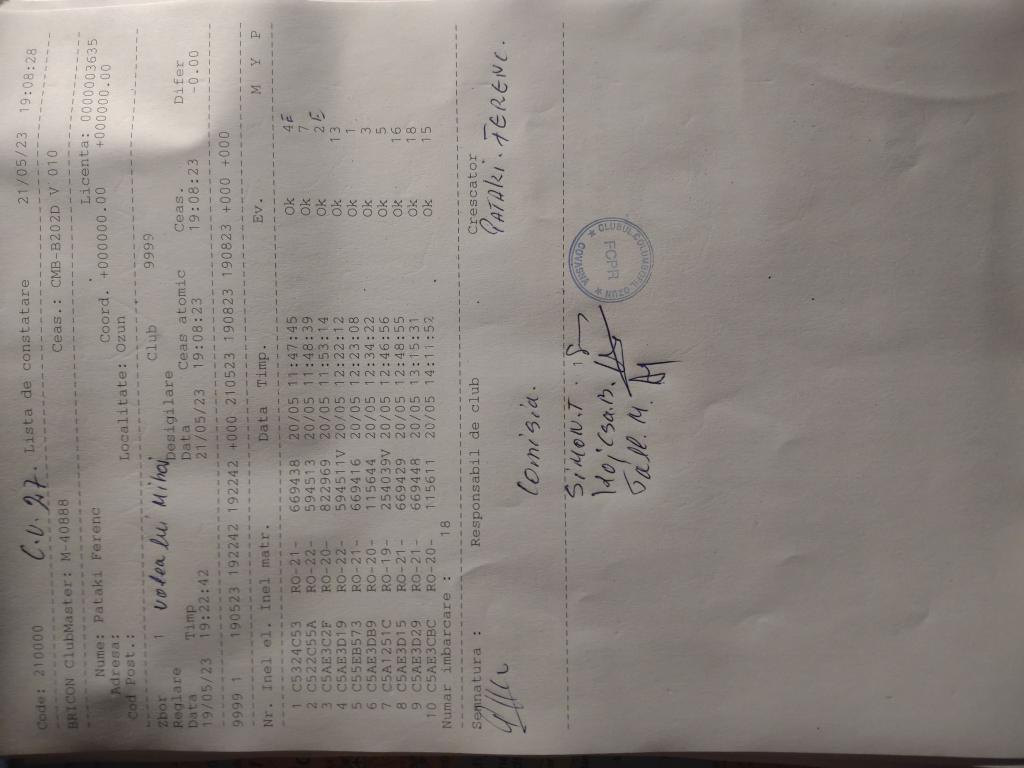 Code: 210000 C.U. 27. Lista de constatare 21/05/23 19:08:28
BRICON ClubMaster: M-40888 Ceas.: CMB-B202D V 010
Nume: Pataki Ferenc Licenta: 0000003635
Adresa: Coord. +0000000.00 +000000.00
Cod Post.: Localitate: Ozun
Zbor 1 Valea lui Mihai Club 9999
Reglare Desigilare
Data Timp Data Ceas atomic Ceas. Difer
19/05/23 19:22:42 21/05/23 19:08:23 19:08:23 -0.00
9999 1 190523 192242 192242 +000 210523 190823 190823 +000 +000
Nr. Inel el. Inel matr. Data Timp. Ev. M Y P
1 C5324C53 RO-21- 669438 20/05 11:47:45 Ok 4E
2 C522C55A RO-22- 594513 20/05 11:48:39 Ok 7
3 C5AE3C2F RO-20- 822969 20/05 11:53:14 Ok 2E
4 C5AE3D19 RO-22- 594511V 20/05 12:22:12 Ok 13
5 C55EB573 RO-21- 669416 20/05 12:23:08 Ok 1
6 C5AE3DB9 RO-20- 115644 20/05 12:34:22 Ok 3
7 C5A1251C RO-19- 254039V 20/05 12:46:56 Ok 5
8 C5AE3D15 RO-21- 669429 20/05 12:48:55 Ok 16
9 C5AE3D29 RO-21- 669448 20/05 13:15:31 Ok 18
10 C5AE3CBC RO-20- 115611 20/05 14:11:52 Ok 15
Numar imbarcare : 18
Semnatura : Responsabil de club Crescator
Comisia. PATAKI. FERENC.
SIMON.T.
Gáll. M.
CLUBUL COLUMBOFIL OZUN
COVASNA
FCPR